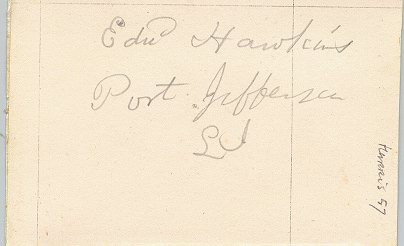 Edw Hawkins
Port Jefferson
LI
Harris 57